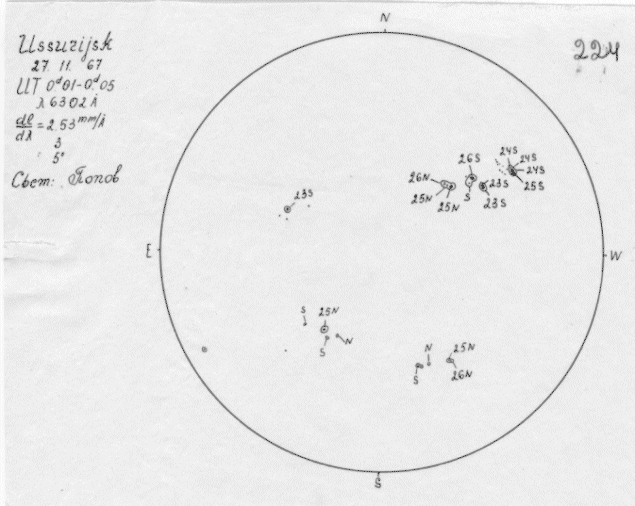 Ussurijsk
27. 11. 67
UT 0ᵈ01-0.ᵈ05
λ 6302 Å
dl/dλ = 2.53 mm/Å
3
5"
Свет: Попов
224
N
E
W
S
24S
24S
24S
25S
26S
23S
23S
S
26N
25N
25N
23S
S
25N
S
N
N
S
25N
26N